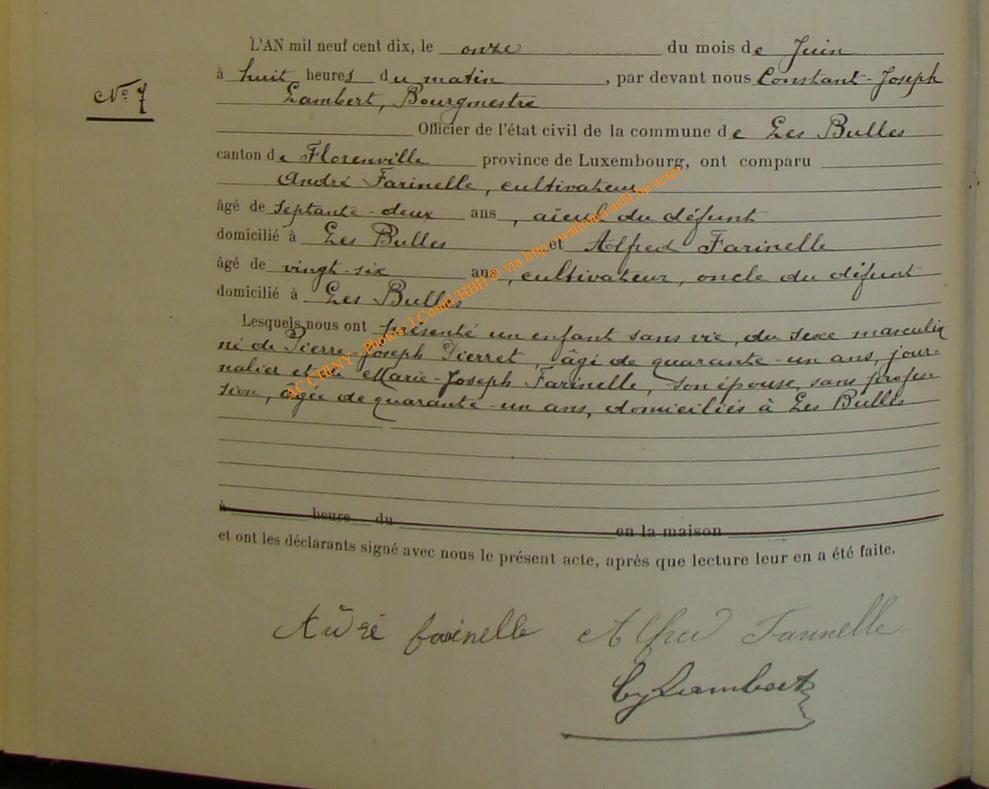 L'AN mil neuf cent dix, le onze du mois de Juin
Nº 7
à huit heures du matin, par devant nous Constant-Joseph
Lambert, Bourgmestre
Officier de l'état civil de la commune de Les Bulles
canton de Florenville province de Luxembourg, ont comparu
André Farinelle, cultivateur
âgé de septante-deux ans, aïeul du défunt
domicilié à Les Bulles et Alfred Farinelle
âgé de vingt-six ans, cultivateur, oncle du défunt
domicilié à Les Bulles
Lesquels nous ont présenté un enfant sans vie, du sexe masculin
né de Pierre-Joseph Pierret, âgé de quarante-un ans, jour-
nalier et de Marie-Joseph Farinelle, son épouse, sans profes-
sion, âgée de quarante-un ans, domiciliés à Les Bulles
à heure du en la maison
et ont les déclarants signé avec nous le présent acte, après que lecture leur en a été faite.
André farinelle Alfred Farinelle
CJLambert